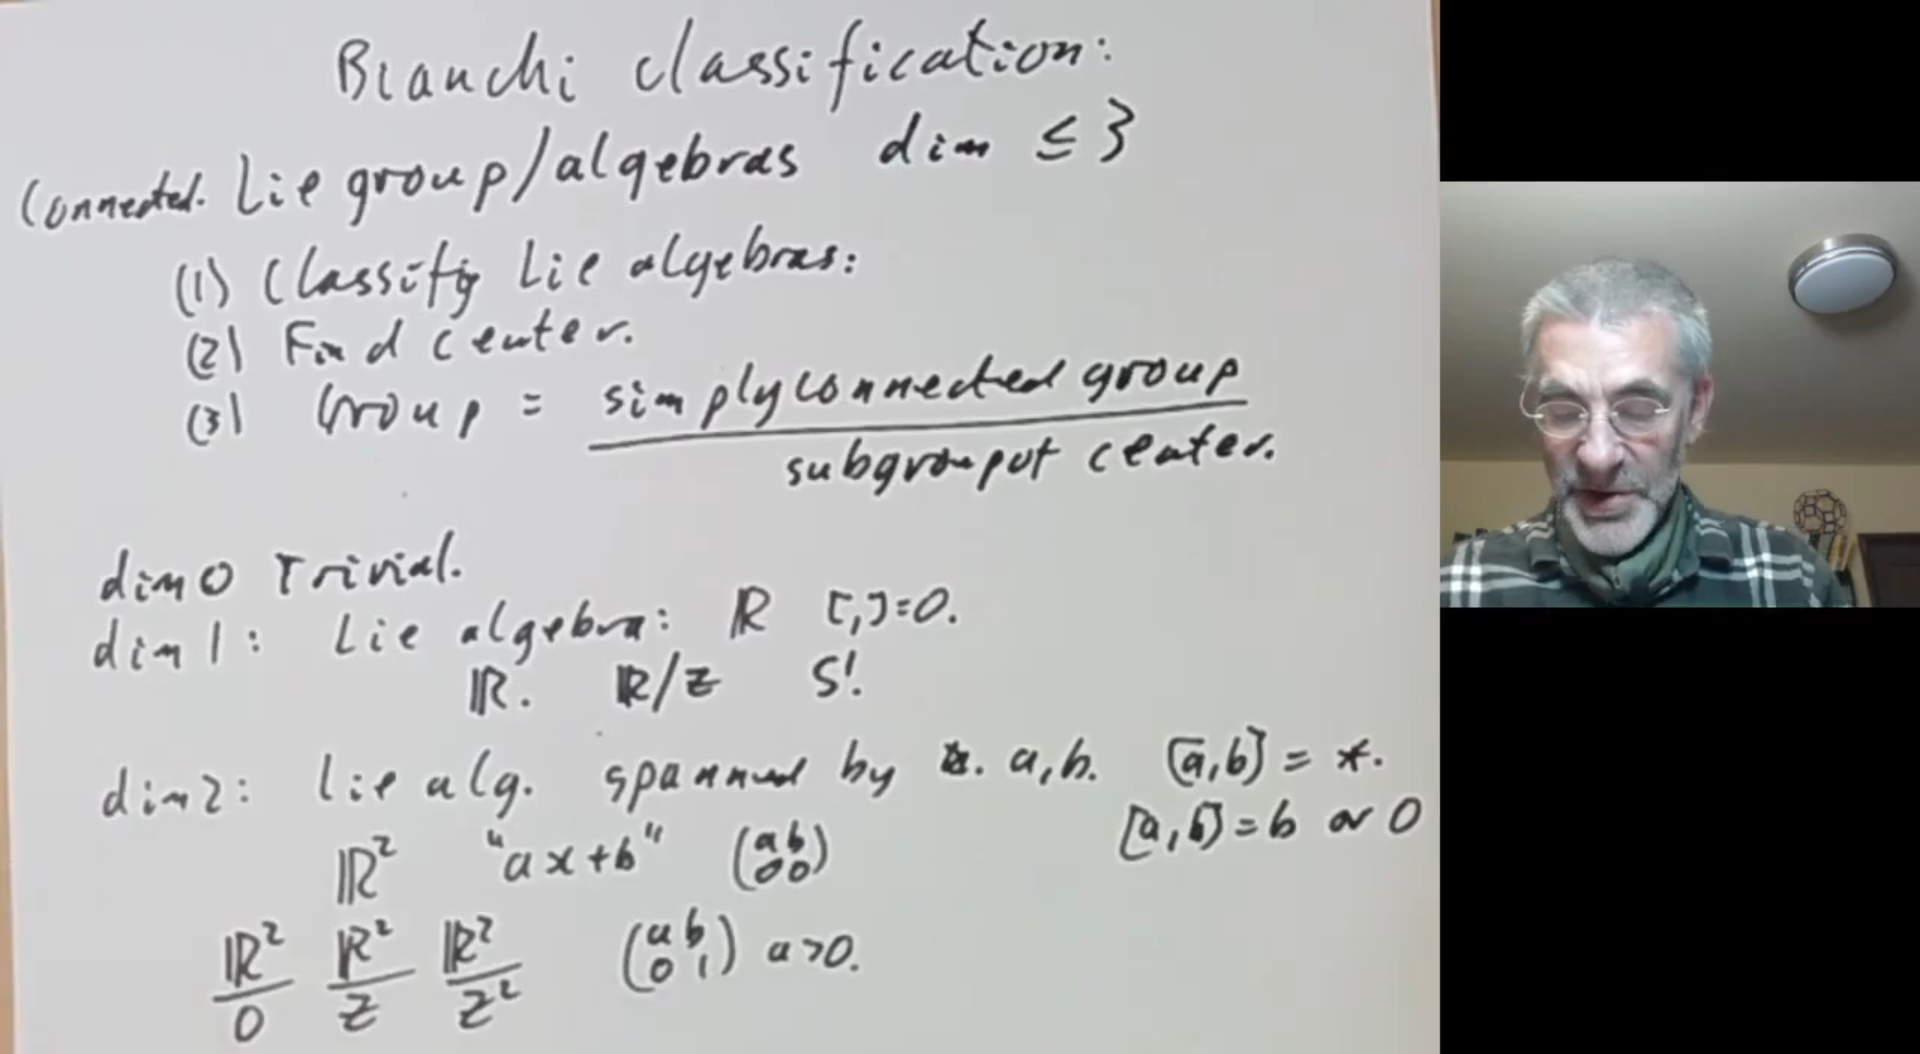 Bianchi classification:
Connected. Lie group/algebras dim ≤ 3
(1) Classify Lie algebras:
(2) Find center.
(3) Group = simply connected group / subgroup of center.
dim 0 Trivial.
dim 1: Lie algebra: ℝ [,]=0.
ℝ. ℝ/ℤ S¹.
dim 2: Lie alg. spanned by a, b. [a,b] = *.
[a,b] = b or 0
ℝ² "ax+b" (a b 0 0)
ℝ²/0 ℝ²/ℤ ℝ²/ℤ² (a b 0 1) a>0.